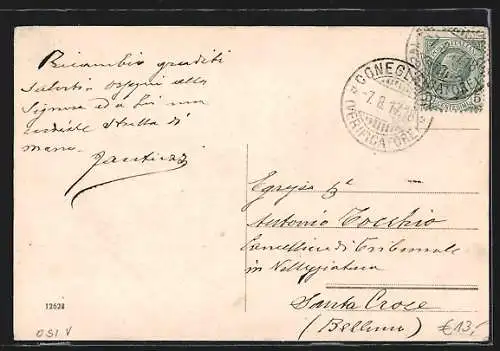 Ricambio graditi
saluti ossequi alla
Signora ed a Lei una
cordiale stretta di
mano.
CONEGL
7. 8. 1
(VERIFICATORE)
Egregio
Antonio Tocchio
Cancelliere di Tribunale
in Villeggiatura
Santa Croce
(Belluno)
12628
OSI V
€13,-